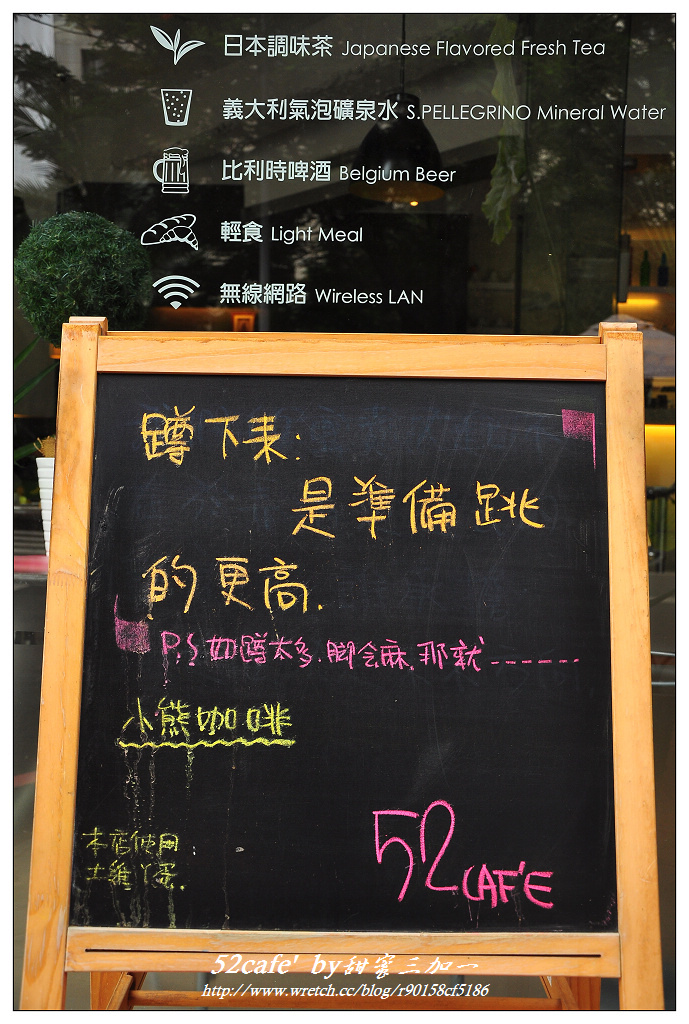 日本調味茶 Japanese Flavored Fresh Tea
義大利氣泡礦泉水 S.PELLEGRINO Mineral Water
比利時啤酒 Belgium Beer
輕食 Light Meal
無線網路 Wireless LAN
蹲下來:
是準備跳
的更高.
P.S 如蹲太多.脚会麻.那就-------
小熊咖啡
本店使用
土雞丫蛋.
52 CAFE
52cafe' by甜蜜三加一
http://www.wretch.cc/blog/r90158cf5186